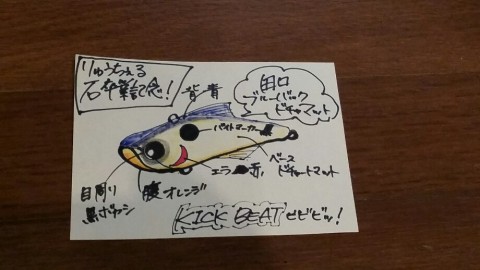 りゅうちぇる
石卒業記念!
背青
田口
ブルーバック
ドチャマット
バイトマーカー黒
ベース
ドチャートマット
エラ 赤
目周り
黒ボカシ
腹オレンジ
KICK BEAT ビビビッ!